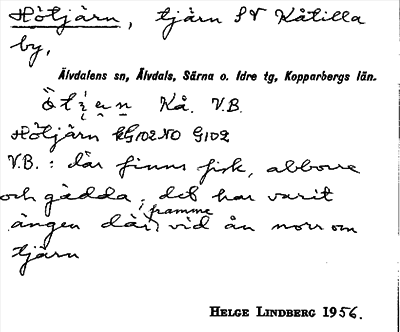 Hötjärn, tjärn SV Kåtilla
by,
Älvdalens sn, Älvdals, Särna o. Idre tg, Kopparbergs län.
Kå. V.B.
Hötjärn
V.B.: där finns fisk, abborre
och gädda; det har varit
ängen där framme vid ån norr om
tjärn
HELGE LINDBERG 1956.